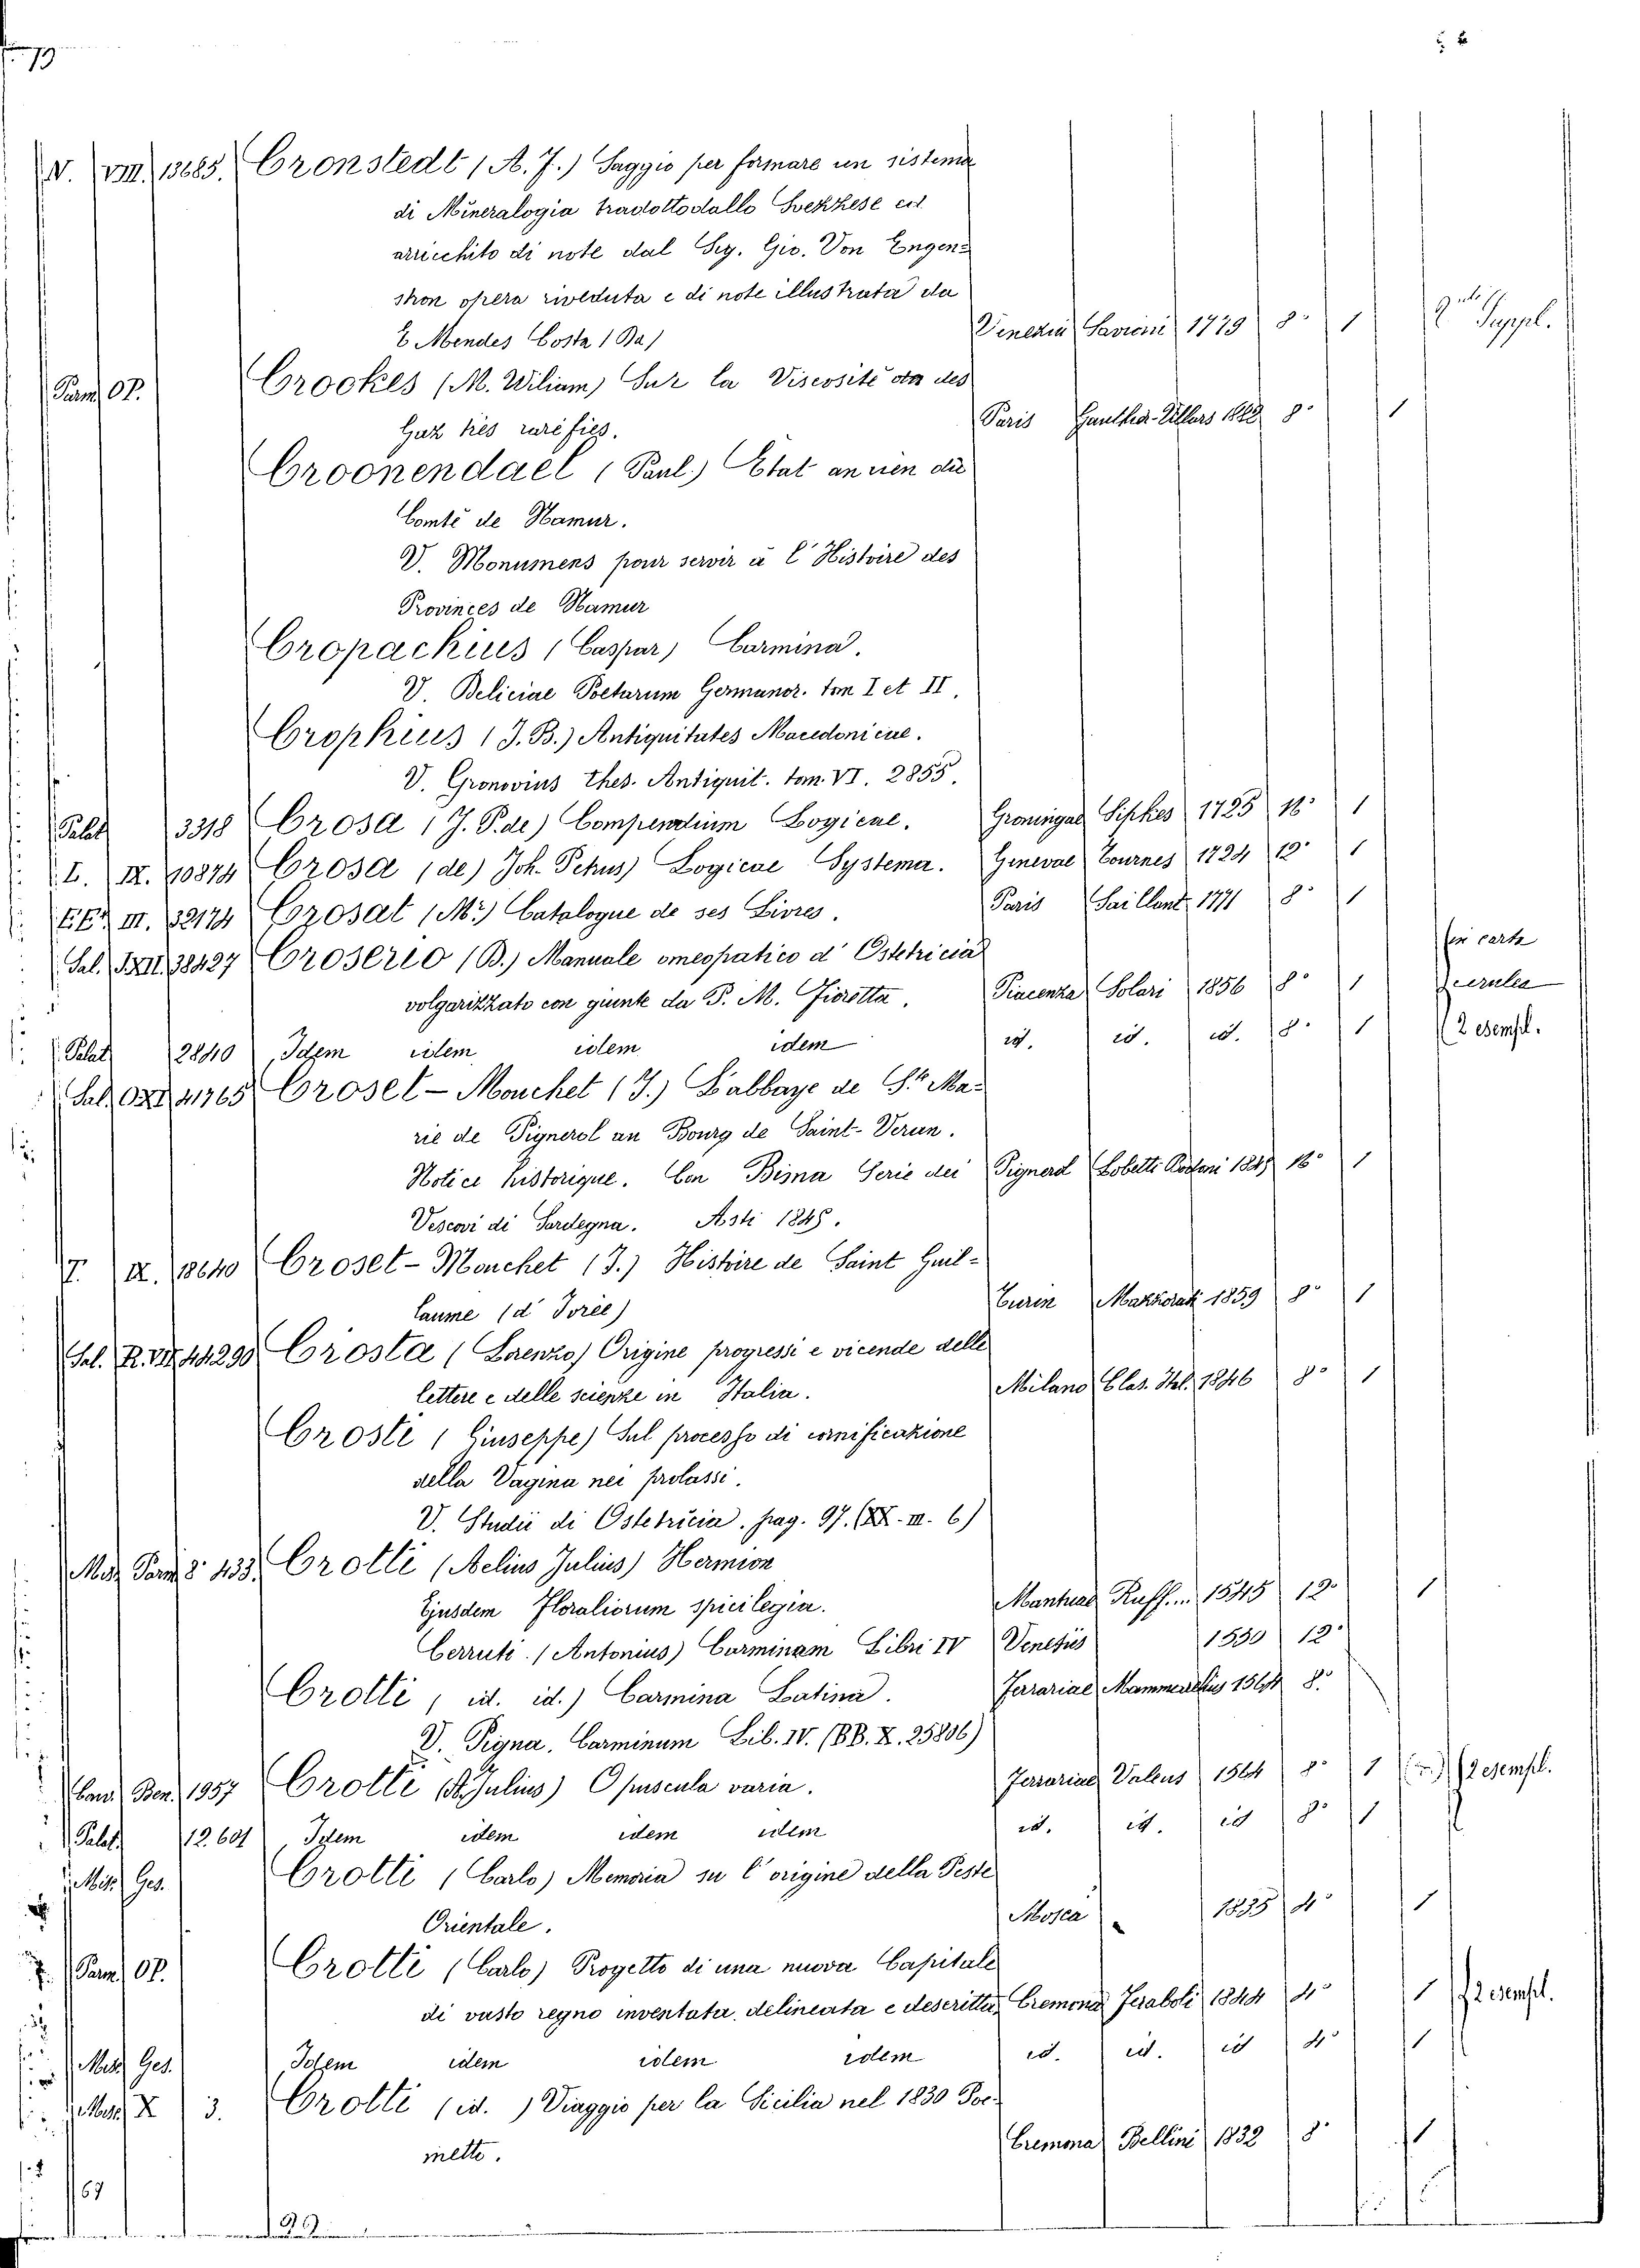 V. VIII. 13685. Cronstedt (A. J.) Saggio per formare un sistema
di Mineralogia tradotto dallo Svezzese ed
arricchito di note dal Sig. Gio. Von Engen=
stron opera riveduta e di note illustrata da
E Mendes Costa (Da) Venezia Savioni 1779 8° 1 Suppl.
Parm. OP. Crookes (M. Wiliam) Sur la Viscosité des
Gaz très raréfiés. Paris Gauthier-Villars 1882 8° 1
Croonendael (Paul.) Etat ancien du
Comté de Namur.
V. Monumens pour servir à l'Histoire des
Provinces de Namur
Cropackius (Caspar) Carmina.
V. Deliciae Poetarum Germanor. tom I et II.
Crophius (J. B.) Antiquitates Macedonicae.
V. Gronovius thes. Antiquit. tom. VI. 2855.
Palat 3318 Crosa (J. P. de) Compendium Logicae. Groningae Sipkes 1725 16° 1
I. IX. 10874 Crosa (de) Joh. Petrus) Logicae Systema. Genevae Tournes 1724 12° 1
III. 32174 Crosat (Mr.) Catalogue de ses Livres. Paris Saillant 1771 8° 1
Sal. 38427 Croserio (B.) Manuale omeopatico d'Ostetricia
volgarizzato con giunte da P. M. Fioretta. Piacenza Solari 1856 8° 1 in carta cerulea
Palat 12840 Idem idem idem idem id. id. id. 8° 1 2 esempl.
Sal. 41765 Croset-Mouchet (J.) L'abbaye de Ste Ma=
rie de Pignerol au Bourg de Saint-Veran.
Notice historique. Con Bima Serie dei Pignerol Lobetti Bodoni 16° 1
Vescovi di Sardegna. Asti 1845.
T. IX. 18640 Croset-Mouchet (J.) Histoire de Saint Guil=
laume (d'Ivrée) Turin Marzorati 1859 8° 1
Sal. R. VII. 44290 Crosta (Lorenzo) Origine progressi e vicende delle
lettere e delle scienze in Italia. Milano Clas. Ital. 1846 8° 1
Crosti (Giuseppe) Sul processo di cornificazione
della Vagina nei prolassi.
V. Studii di Ostetricia. pag. 97. (XX. III. 6)
Misc. Parm. 8° 433. Crotti (Aelius Julius) Hermion
Ejusdem Floraliorum spicilegia. Mantuae Ruff... 1545 12° 1
Cerruti. (Antonius) Carminam Libri IV Venetiis 1550 12°
Crotti (id. id.) Carmina Latina. Ferrariae 1564 8°
V. Pigna. Carminum Lib. IV. (BB. X. 25806)
Cand. Ben. 1957 Crotti (A. Julius) Opuscula varia. Ferrariae Valens 1564 8° 1 2 esempl.
Palat. 12.601 Idem idem idem idem id. id. id 8° 1
Misc. Ges. Crotti (Carlo) Memoria su l'origine della Peste
Orientale. Mosca 1835 4° 1
Parm. OP. Crotti (Carlo) Progetto di una nuova Capitale
di vasto regno inventata, delineata e descritta Cremona Feraboli 1844 4° 1 2 esempl.
Misc. Ges. Idem idem idem idem id. id. id 4° 1
Misc. X 3. Crotti (id.) Viaggio per la Sicilia nel 1830 Poe=
metto. Cremona Bellini 1832 8° 1